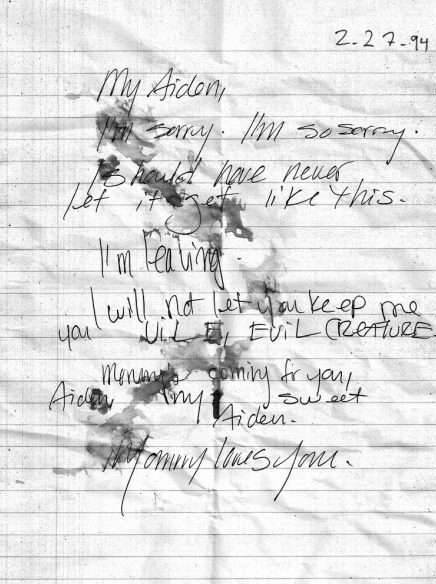 2-27-94
My Aiden,
I'm sorry. I'm so sorry.
I should have never
let it get like this.
I'm leaving.
I will not let you keep me
you VILE, EVIL CREATURE
Mommy's coming for you,
Aiden my sweet
Aiden.
Mommy loves you.